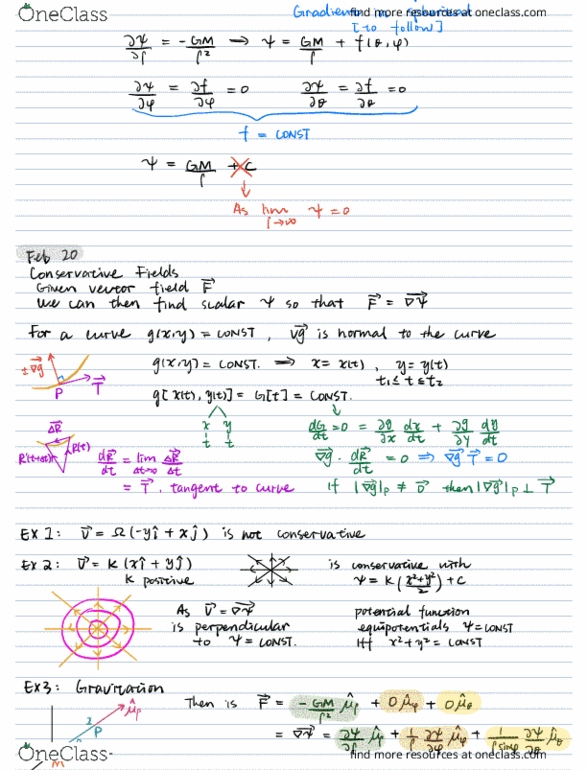 OneClass
find more resources at oneclass.com
[to follow]
∂ψ/∂ρ = -GM/ρ² → ψ = GM/ρ + f(θ,φ)
∂ψ/∂φ = ∂f/∂φ = 0   ∂ψ/∂θ = ∂f/∂θ = 0
f = CONST
ψ = GM/ρ + C
As lim ρ→∞ ψ = 0
Feb 20
Conservative Fields
Given vector field F⃗
we can then find scalar ψ so that F⃗ = ∇⃗ψ
For a curve g(x,y) = CONST, ∇⃗g is normal to the curve
±∇⃗g
P T⃗
g(x,y) = CONST. → x = x(t), y = y(t)
t₁ ≤ t ≤ t₂
g[x(t), y(t)] = G[t] = CONST.
x y
t t
dG/dt = 0 = ∂g/∂x dx/dt + ∂g/∂y dy/dt
ΔR⃗
R(t+Δt) R(t)
dR⃗/dt = lim Δt→0 ΔR⃗/Δt
∇⃗g · dR⃗/dt = 0 ⇒ ∇⃗g T⃗ = 0
= T⃗, tangent to curve
If |∇⃗g|ₚ ≠ 0⃗ then |∇⃗g|ₚ ⊥ T⃗
EX 1: v⃗ = Ω(-yî + xĵ) is not conservative
EX 2: v⃗ = K(xî + yĵ)
K positive
is conservative with
ψ = K((x²+y²)/2) + C
As v⃗ = ∇⃗ψ
is perpendicular
to ψ = CONST.
potential function
equipotentials ψ = CONST
iff x²+y² = CONST
EX3: Gravitation
Then is F⃗ = -GM/ρ² μ̂ρ + 0μ̂φ + 0μ̂θ
= ∇⃗ψ = ∂ψ/∂ρ μ̂ρ + 1/ρ ∂ψ/∂φ μ̂φ + 1/(ρ sinφ) ∂ψ/∂θ μ̂θ
μ̂ρ
P
m
OneClass
find more resources at oneclass.com